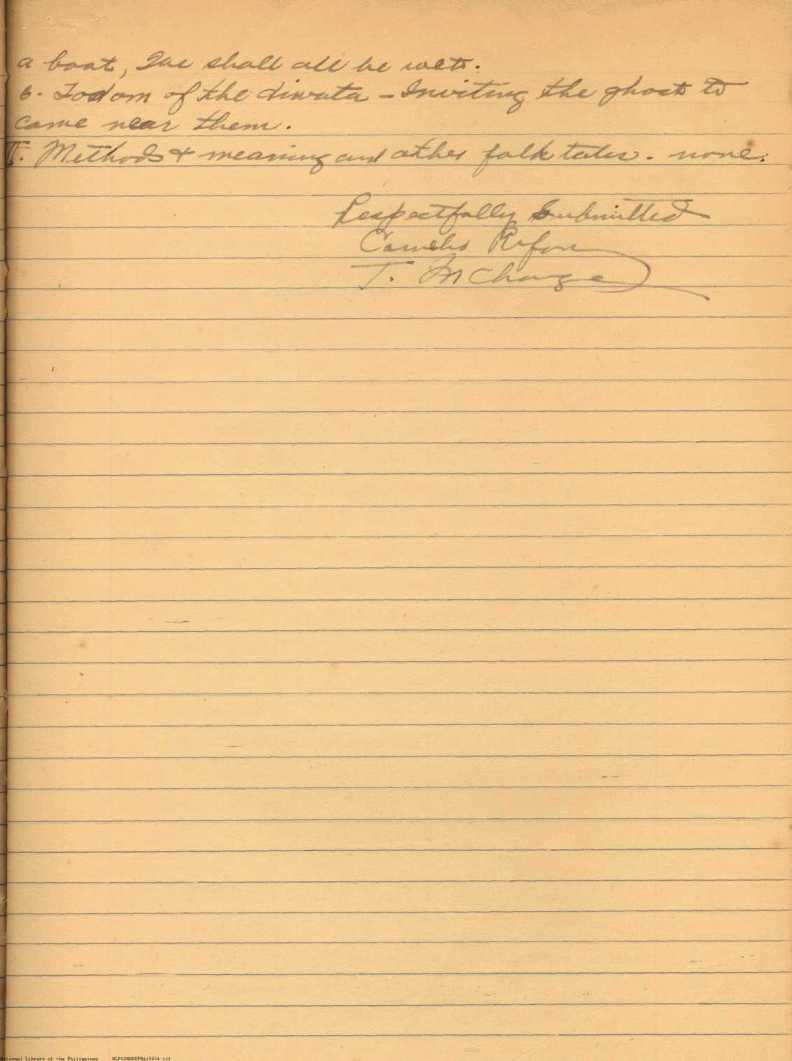 a boat, We shall all be wet.
6. Todom of the diwata - Inviting the ghost to
come near them.
T. Methods & meaning and other folk tales. none.
Respectfully Submitted
Rufon
T. In Charge
National Library of the Philippines